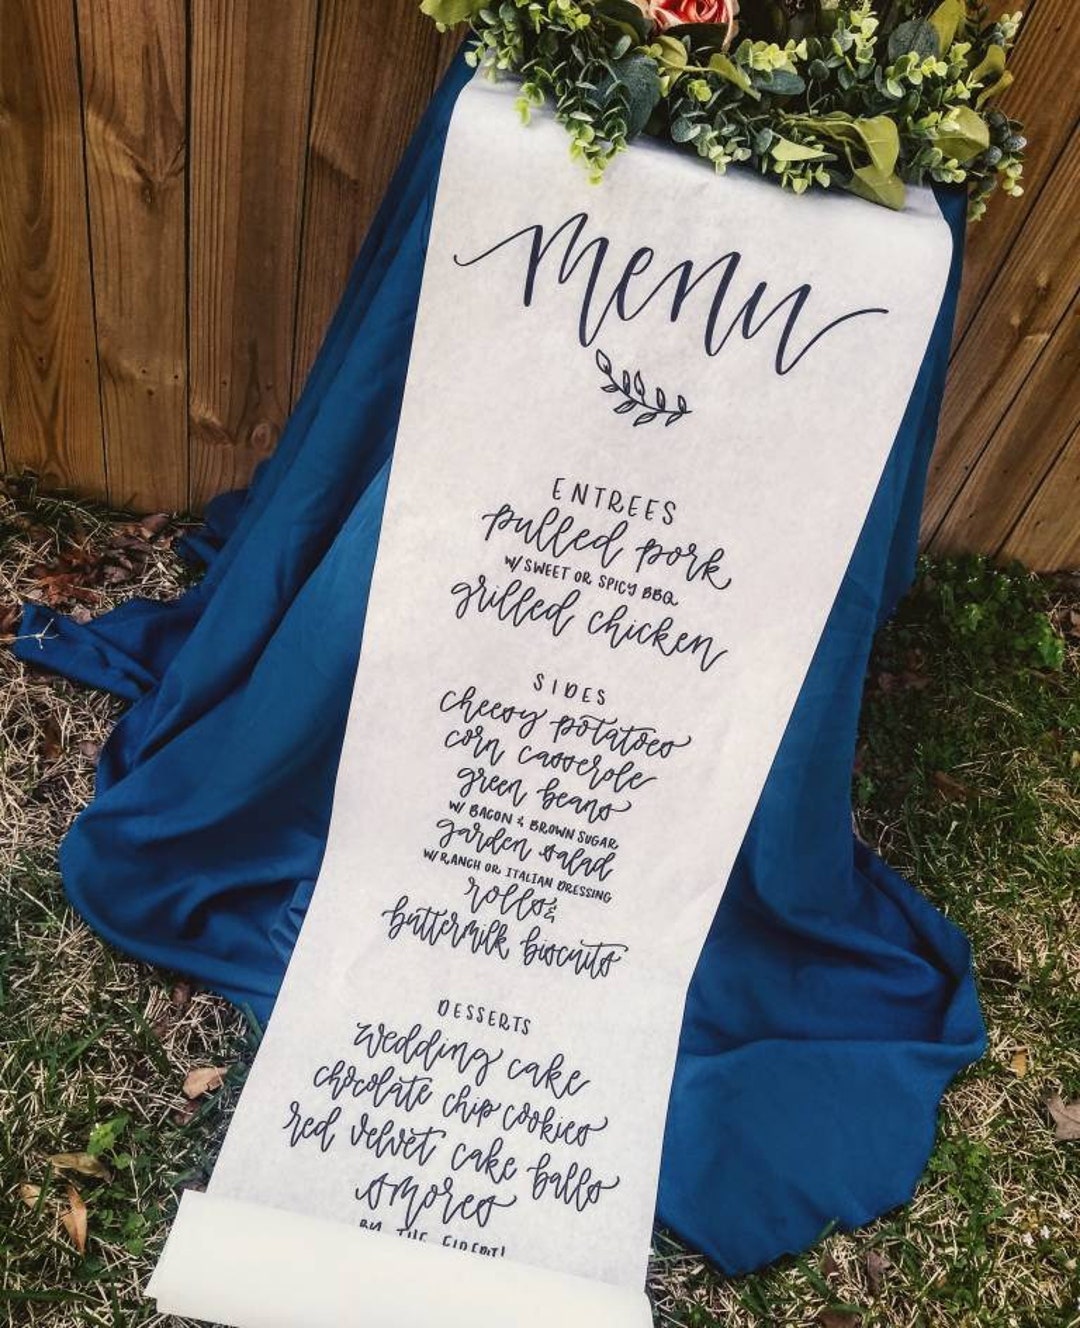 menu
ENTREES
pulled pork
W/ SWEET OR SPICY BBQ
grilled chicken
SIDES
cheesy potatoes
corn casserole
green beans
W/ BACON & BROWN SUGAR
garden salad
W/ RANCH OR ITALIAN DRESSING
rolls &
buttermilk biscuits
DESSERTS
wedding cake
chocolate chip cookies
red velvet cake balls
smores
BY THE FIREPIT!